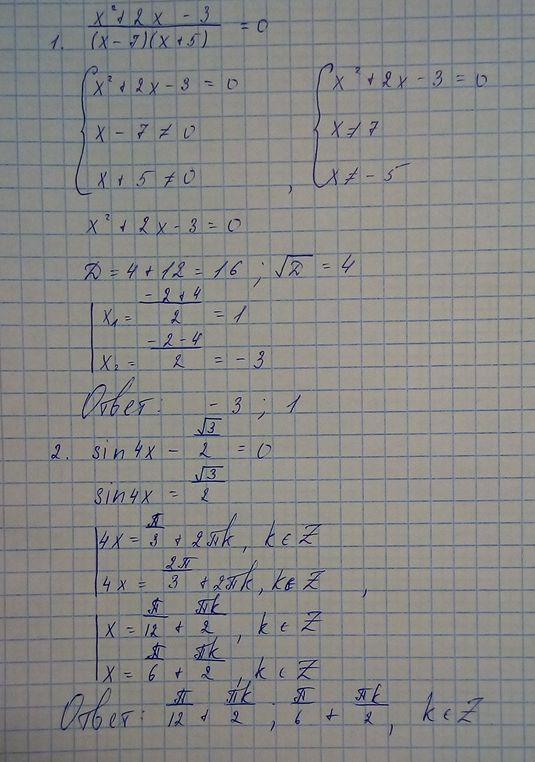 1. (x² + 2x - 3) / ((x - 7)(x + 5)) = 0
{ x² + 2x - 3 = 0 , { x² + 2x - 3 = 0
x - 7 ≠ 0 x ≠ 7
x + 5 ≠ 0 x ≠ - 5
x² + 2x - 3 = 0
D = 4 + 12 = 16 ; √D = 4
[ x₁ = (- 2 + 4) / 2 = 1
x₂ = (- 2 - 4) / 2 = - 3
Ответ: - 3 ; 1
2. sin 4x - √3 / 2 = 0
sin 4x = √3 / 2
[ 4x = π/3 + 2πk, k ∈ Z
4x = 2π/3 + 2πk, k ∈ Z ,
[ x = π/12 + πk/2 , k ∈ Z
x = π/6 + πk/2 , k ∈ Z
Ответ: π/12 + πk/2 ; π/6 + πk/2 , k ∈ Z